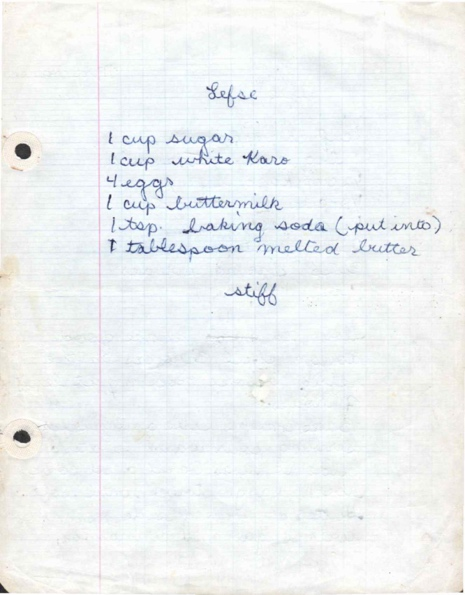 Lefse
1 cup sugar
1 cup white Karo
4 eggs
1 cup buttermilk
1 tsp. baking soda (put into)
1 tablespoon melted butter
stiff